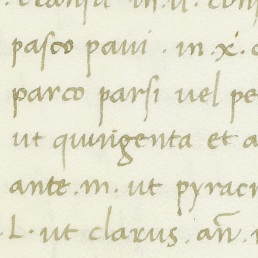 pasco paui . in . x . c
parco parsi uel pe
ut quingenta et a
ante . m . ut pyrac
. L . ut clarus . an̄ .